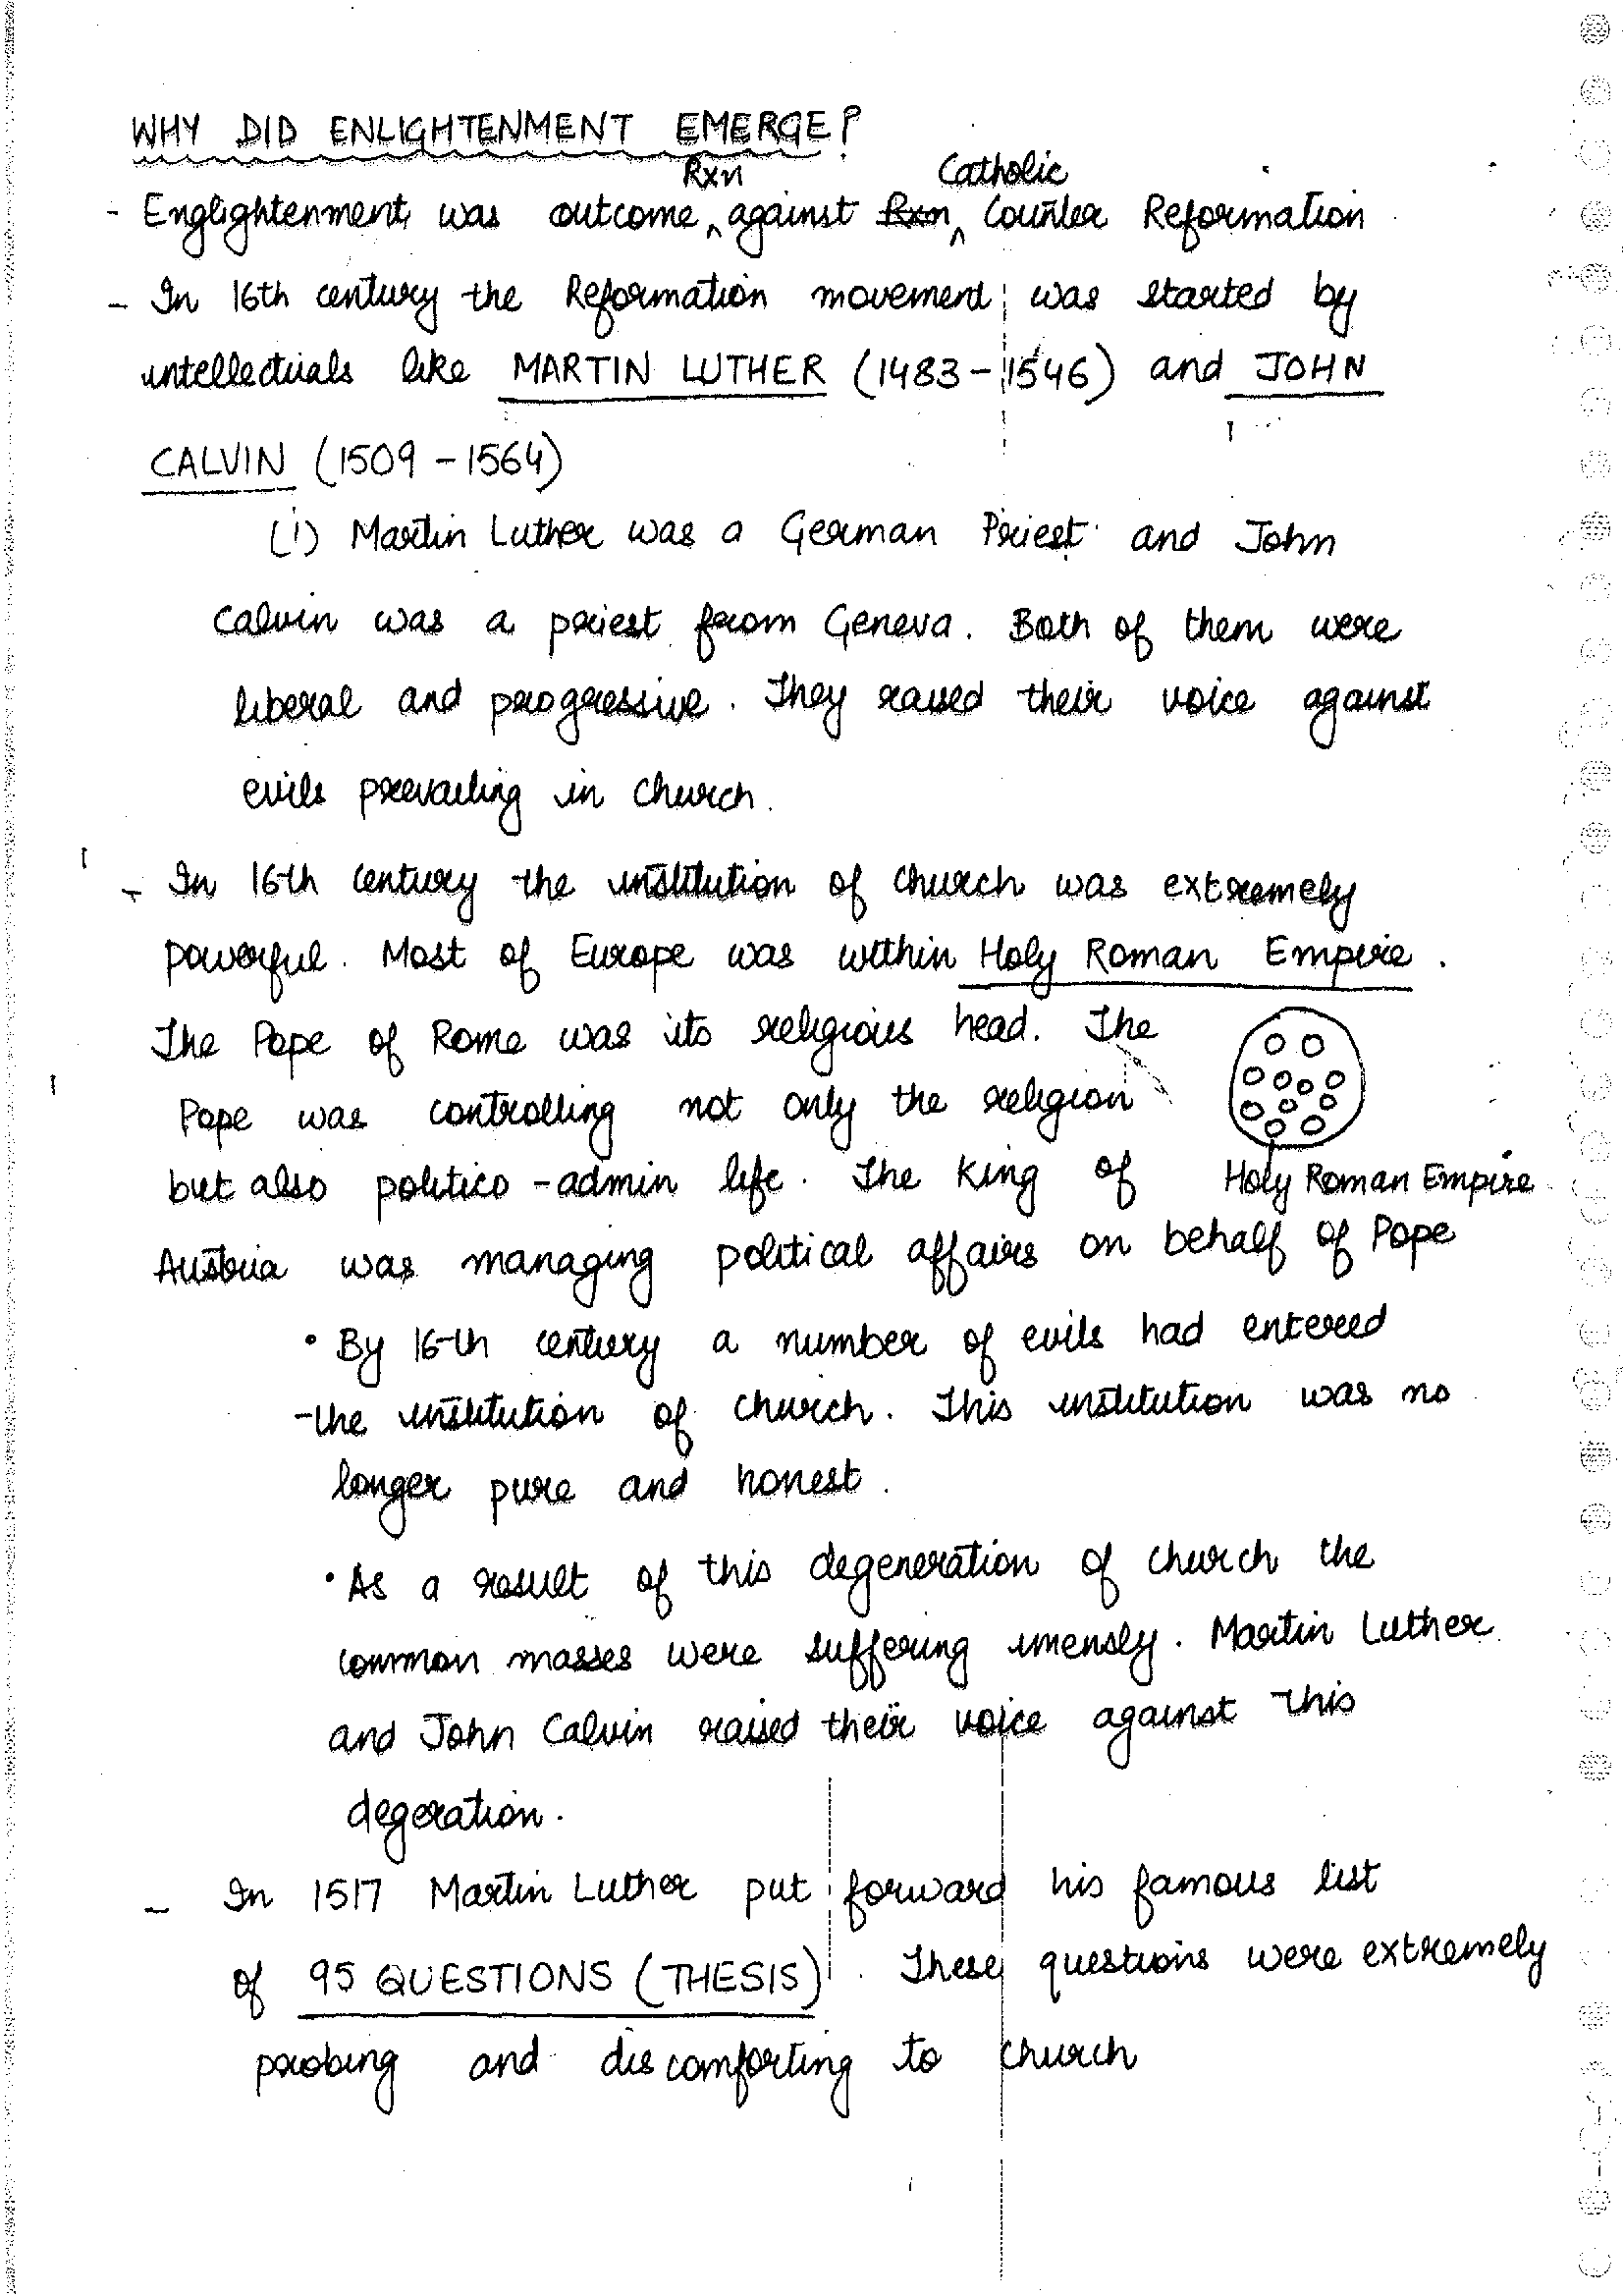 WHY DID ENLIGHTENMENT EMERGE?
Rxn Catholic
- Englightenment was outcome ^ against Rxn ^ Counter Reformation
- In 16th century the Reformation movement was started by
intellectuals like MARTIN LUTHER (1483-1546) and JOHN
CALVIN (1509-1564)
(i) Martin Luther was a German Priest and John
Calvin was a priest from Geneva. Both of them were
liberal and progressive. They raised their voice against
evils prevailing in church.
- In 16th century the institution of church was extremely
powerful. Most of Europe was within Holy Roman Empire.
The Pope of Rome was its religious head. The
Pope was controlling not only the religion
but also politico-admin life. The King of
Holy Roman Empire
Austria was managing political affairs on behalf of Pope
• By 16th century a number of evils had entered
the institution of church. This institution was no
longer pure and honest.
• As a result of this degeneration of church the
common masses were suffering imensly. Martin Luther
and John Calvin raised their voice against this
degeration.
- In 1517 Martin Luther put forward his famous list
of 95 QUESTIONS (THESIS). These questions were extremely
probing and discomforting to church